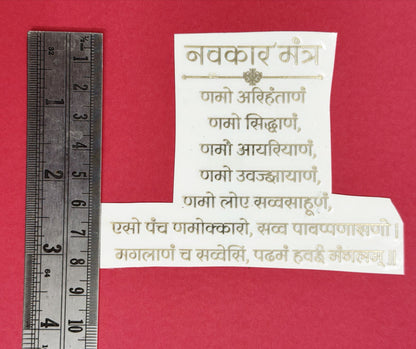 नवकार मंत्र
णमो अरिहंताणं
णमो सिद्धाणं,
णमो आयरियाणं,
णमो उवज्झायाणं,
णमो लोए सव्वसाहूणं,
एसो पंच णमोक्कारो, सव्व पावप्पणासणो ।
मगलाणं च सव्वेसिं, पढमं हवई मंगलम् ॥
1
2
3
1
2
3
4
5
6
7
8
9
10
32